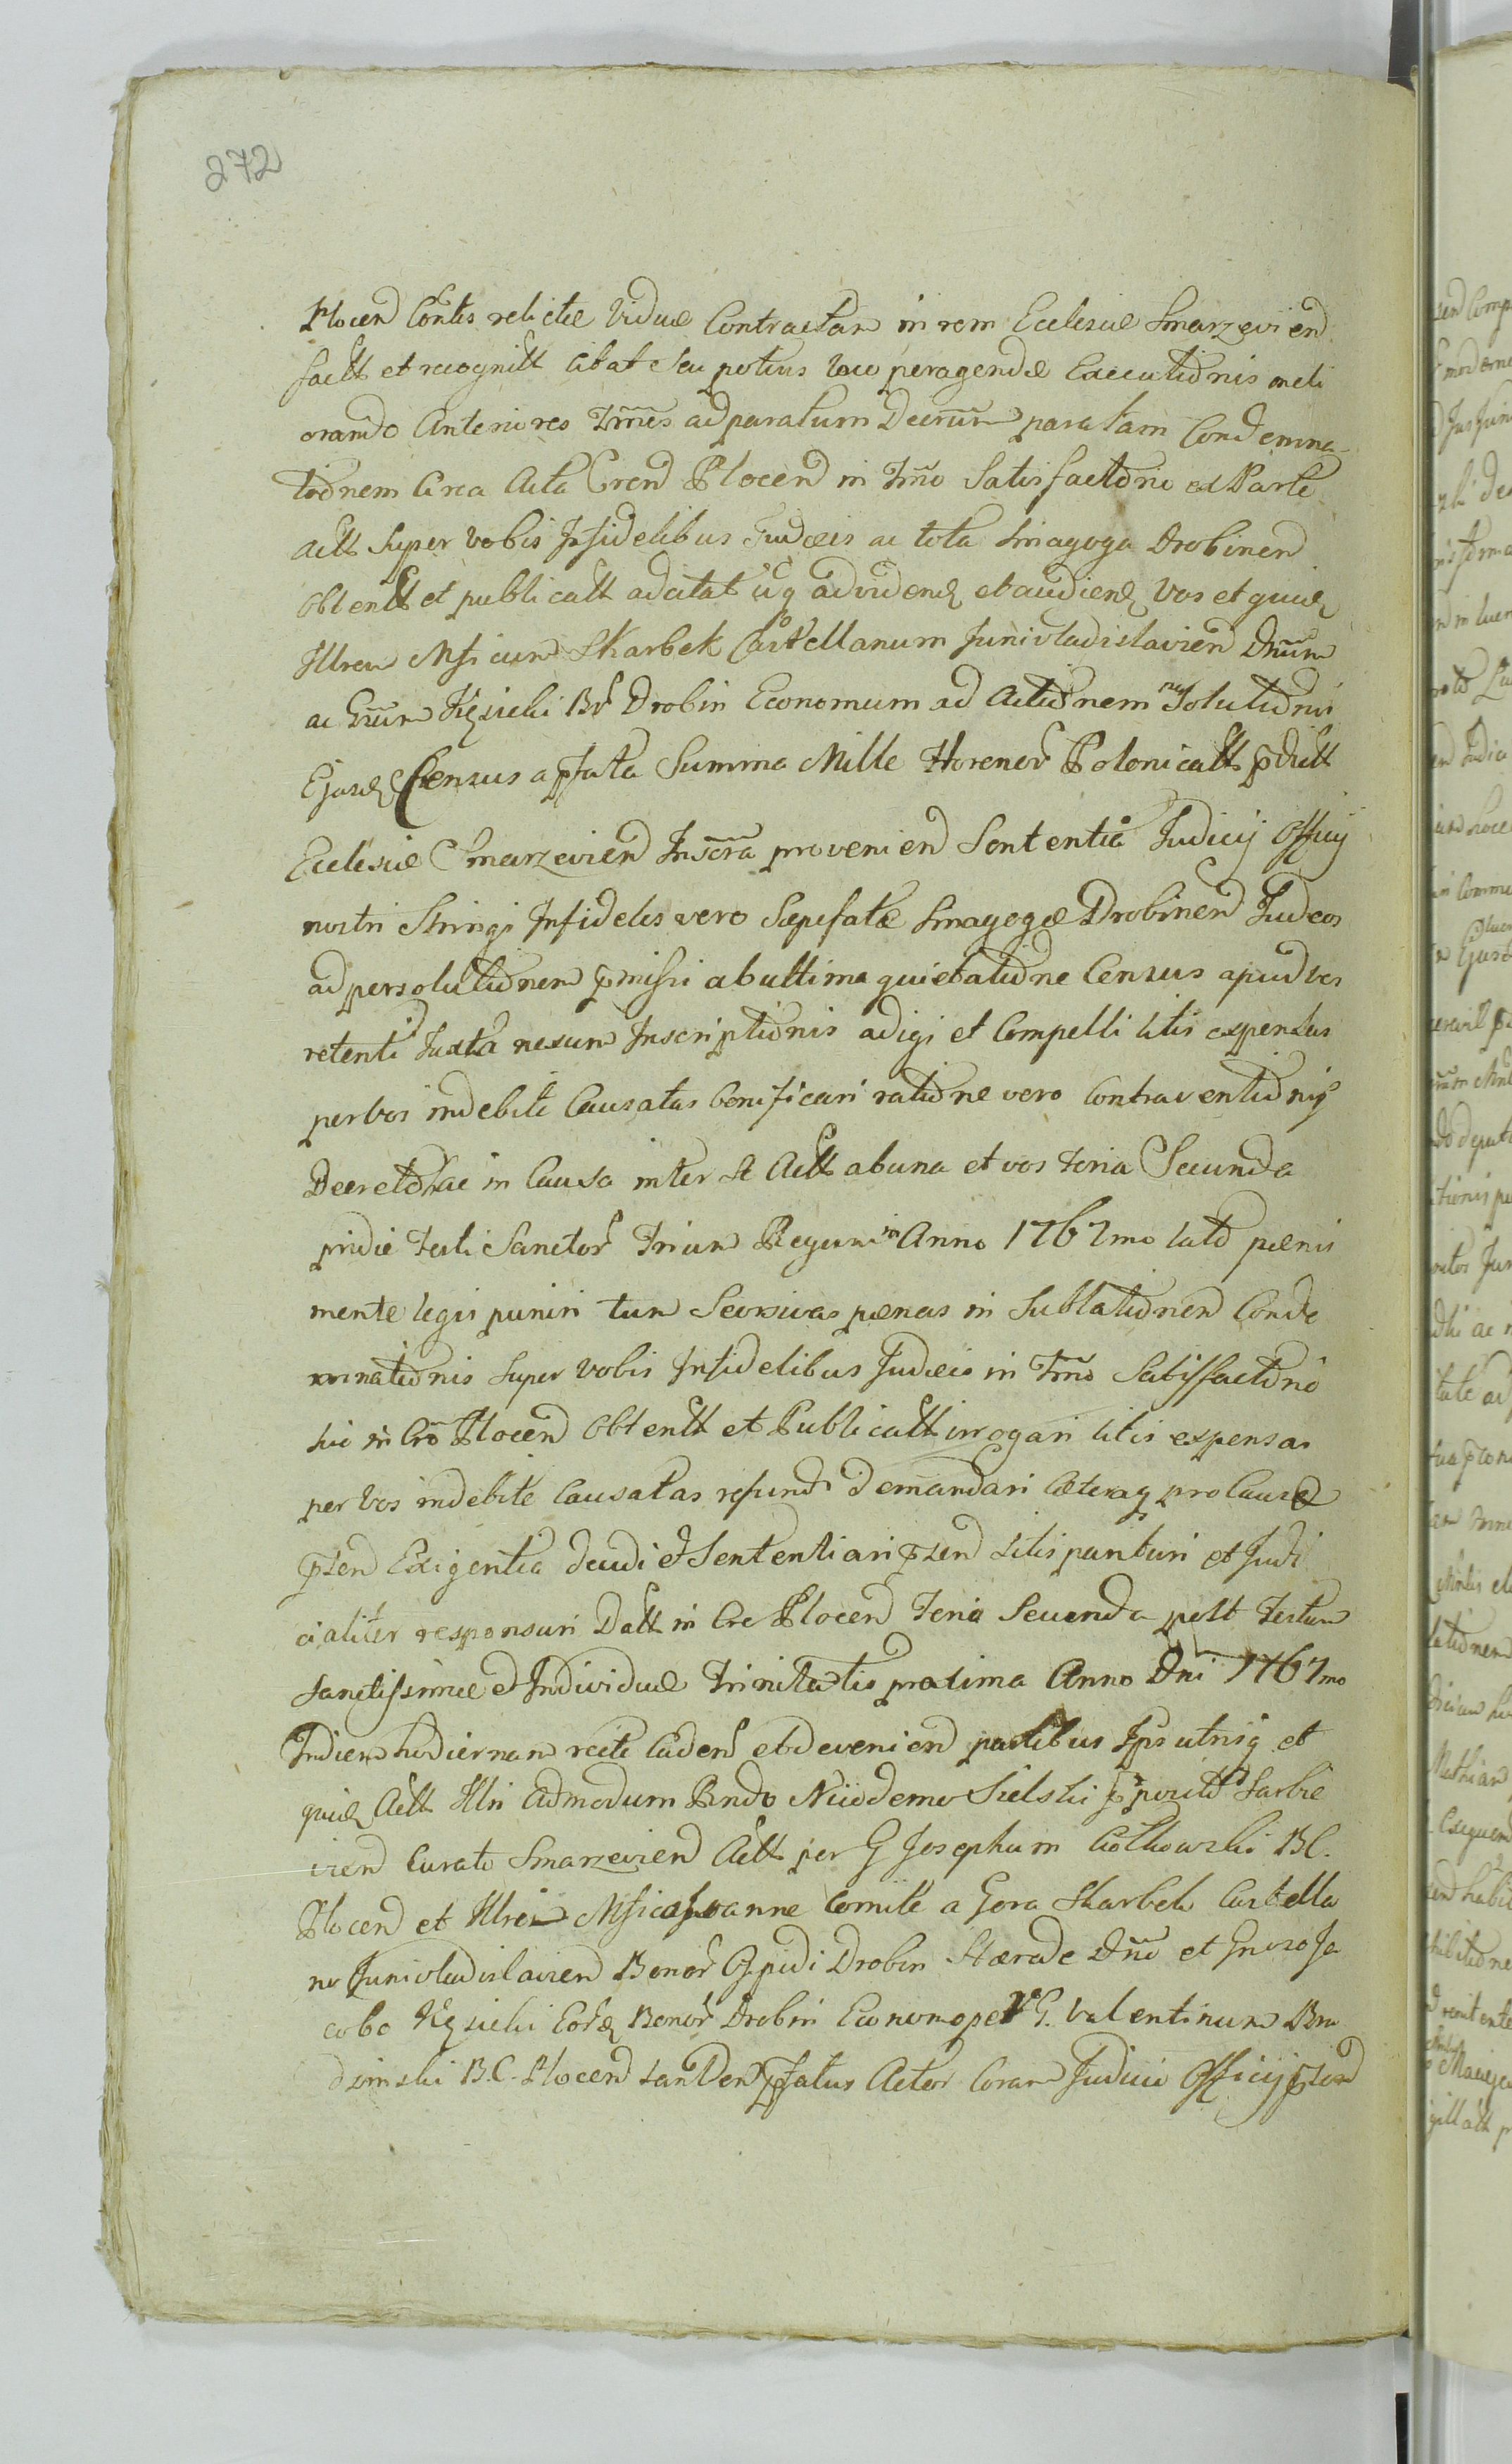 272
Plocen Contis relictæ Viduæ Contractam in rem Ecclesiæ Smarzevien
factt et recognitt citat Seu potius loco peragendæ Executionis meli
orando Anteriores Tmes ad paratum Decrum paratam Condemna-
tionem Circa Acta Cren Plocen in Tmo Satisfactionis ex Parte
Actt Super vobis Infidelibus Judæis ac tota Sinagoga Drobinen
obtentt et publicatt adcitat itaq ad viden et audien Vos et quidem
Illrem Mficum Skarbek Castellanum Junivladislavien Dnum
ac Grum Kęsicki Br Drobin Economum ad Actionem Solutionis
Ejusd Census a pfata Summa Mille Florenor Polonicatt pdictt
Ecclesiæ Smarzevien Inscra provenien Sententia Judicij Officij
nostri Stringi Infideles vero Sæpefatæ Sinagogæ Drobinen Judeos
ad persolutionem pmissi ab ultima quietatione Census apud vos
retenti Juxta nexum Inscriptionis adigi et Compelli litis expensas
per vos indebite Causatas bonificari ratione vero Contraventionis
Decreto hac in Causa inter A Actt ab una et vos Feria Secunda
pridie Festi Sanctor Trium Regum in Anno 1767mo lato pænis
mente legis puniri tum Seorsivas pænas in Sublationem Conde
mnationis Super vobis Infidelibus Judæis in Tmo Satisfactionis
hic in Cro Plocen Obtentt et Publicatt irrogari litis expensas
per Vos indebite Causatas refundi demandari Cæteraq pro Causæ
psen Exigentia decidi et Sententiari psen litis parituri et Judi
cialiter responsuri Datt in Cre Plocen Feria Secunda post Festum
Sanctissimæ et Individuæ Trinitatis proxima Anno Dni 1767mo
In diem hodiernam recte Caden et devenien partibus Ipsis utrisq et
quidem Actt Illri Admodum Rndo Nicodemo Sielski Pposito Sarbie
vien Curato Smarzevien Actt per G Josephum Ciołkowski B.C.
Plocen et Illrem Mfico Joanne Comite a Gora Skarbek Castella
no Junivladislavien Bonor Oppidi Drobin Hærede Dno et Gnoso Ja
cobo Kęsicki Eord Bonor Drobin Economo per G. Valentinum Bro
dzinski B.C. Plocen tanden pfatus Actor Coram Judicio Officij psen